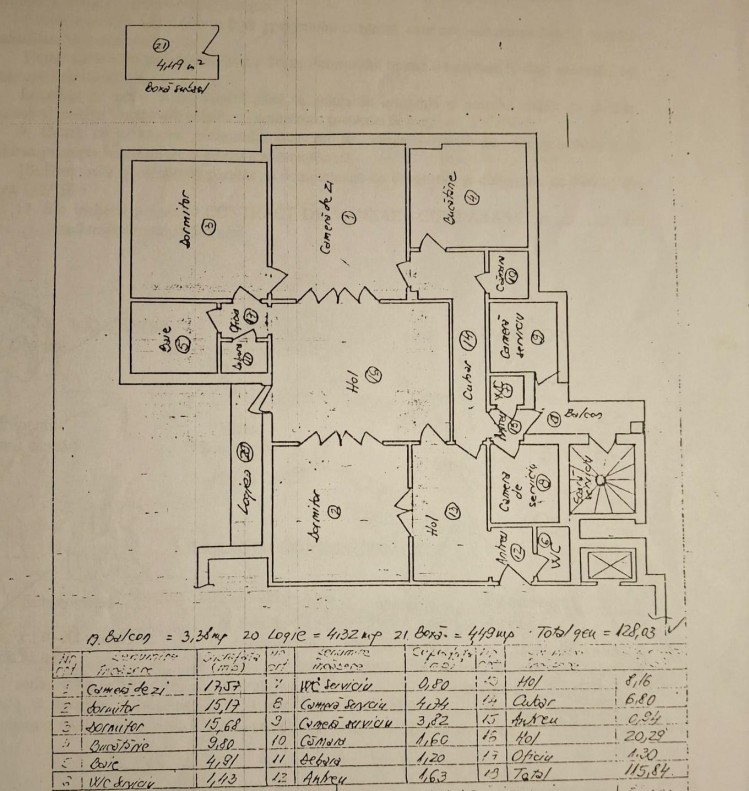 21
4,49 m²
Boxă
Dormitor
3
Cameră de zi
1
Bucătărie
4
Cămara
10
Baie
5
Oficiu
17
11
Hol
16
Culoar
14
Cameră serviciu
9
WC
7
Antreu
15
Balcon
Logia
20
Dormitor
2
Hol
13
Camera de serviciu
8
Scară serviciu
Antreu
12
6
WC
19. Balcon = 3,38 mp 20 Logie = 4,32 mp 21. Boxă = 4,49 mp Total gen = 128,03
1 Cameră de zi 17,57 7 WC Serviciu 0,80 13 Hol 8,16
2 Dormitor 15,17 8 Camera Serviciu 4,74 14 Culoar 6,80
3 Dormitor 15,68 9 Cameră serviciu 3,82 15 Antreu 0,94
4 Bucătărie 9,80 10 Cămara 1,60 16 Hol 20,29
5 Baie 4,91 11 Debara 1,20 17 Oficiu 1,30
6 WC Serviciu 1,43 12 Antreu 1,63 Total 115,84